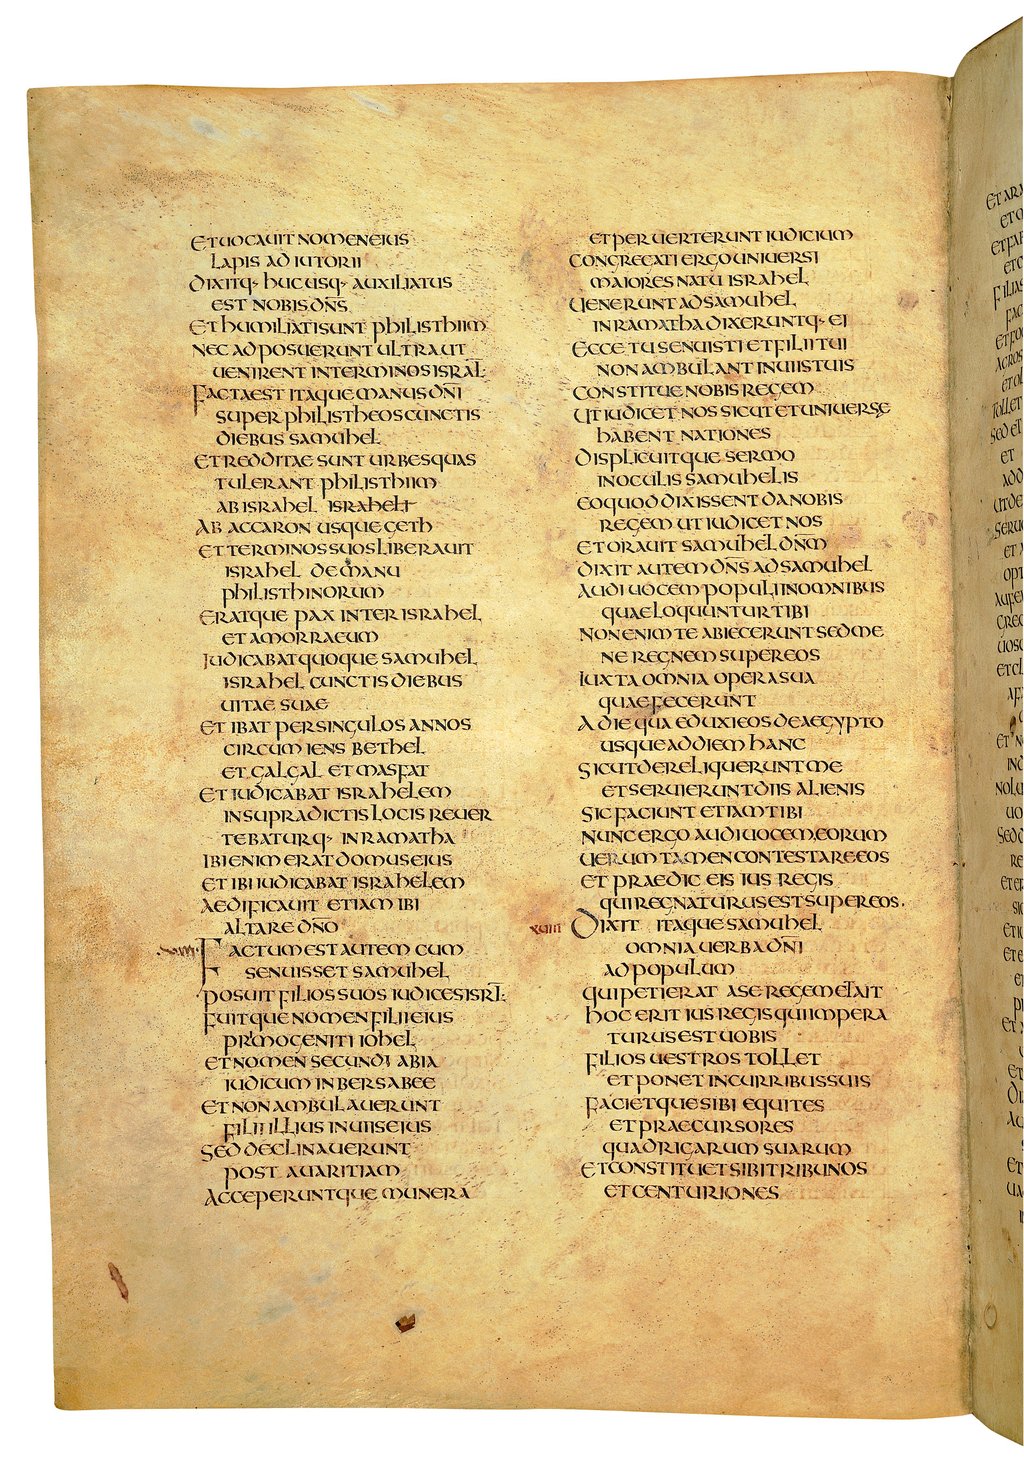 ET UOCAUIT NOMEN EIUS
LAPIS ADIUTORII
DIXITQ· HUCUSQ· AUXILIATUS
EST NOBIS DN̄S
ET HUMILIATI SUNT PHILISTHIIM
NEC ADPOSUERUNT ULTRA UT
UENIRENT INTERMINOS ISRAL̄·
FACTA EST ITAQUE MANUS DN̄I
SUPER PHILISTHEOS CUNCTIS
DIEBUS SAMUHEL
ET REDDITAE SUNT URBES QUAS
TULERANT PHILISTHIIM
AB ISRAHEL ISRAHELI
AB ACCARON USQUE GETH
ET TERMINOS SUOS LIBERAUIT
ISRAHEL DE MANU
PHILISTHINORUM
ERATQUE PAX INTER ISRAHEL
ET AMORRAEUM
IUDICABAT QUOQUE SAMUHEL
ISRAHEL CUNCTIS DIEBUS
UITAE SUAE
ET IBAT PER SINGULOS ANNOS
CIRCUMIENS BETHEL
ET GALGAL ET MASFAT
ET IUDICABAT ISRAHELEM
IN SUPRADICTIS LOCIS REUER
TEBATURQ· IN RAMATHA
IBI ENIM ERAT DOMUS EIUS
ET IBI IUDICABAT ISRAHELEM
AEDIFICAUIT ETIAM IBI
ALTARE DN̄O
FACTUM EST AUTEM CUM
SENUISSET SAMUHEL
POSUIT FILIOS SUOS IUDICES ISRL̄·
FUITQUE NOMEN FILII EIUS
PRIMOGENITI IOHEL
ET NOMEN SECUNDI ABIA
IUDICUM IN BERSABEE
ET NON AMBULAUERUNT
FILII ILLIUS IN UIIS EIUS
SED DECLINAUERUNT
POST AUARITIAM
ACCEPERUNTQUE MUNERA
ET PERUERTERUNT IUDICIUM
CONGREGATI ERGO UNIUERSI
MAIORES NATU ISRAHEL
UENERUNT AD SAMUHEL
IN RAMATHA DIXERUNTQ· EI
ECCE TU SENUISTI ET FILII TUI
NON AMBULANT IN UIIS TUIS
CONSTITUE NOBIS REGEM
UT IUDICET NOS SICUT ET UNIUERSE
HABENT NATIONES
DISPLICUITQUE SERMO
IN OCULIS SAMUHELIS
EO QUOD DIXISSENT DA NOBIS
REGEM UT IUDICET NOS
ET ORAUIT SAMUHEL DN̄M
DIXIT AUTEM DN̄S AD SAMUHEL
AUDI UOCEM POPULI IN OMNIBUS
QUAE LOQUUNTUR TIBI
NON ENIM TE ABIECERUNT SED ME
NE REGNEM SUPER EOS
IUXTA OMNIA OPERA SUA
QUAE FECERUNT
A DIE QUA EDUXI EOS DE AEGYPTO
USQUE AD DIEM HANC
SICUT DERELIQUERUNT ME
ET SERUIERUNT DIIS ALIENIS
SIC FACIUNT ETIAM TIBI
NUNC ERGO AUDI UOCEM EORUM
UERUMTAMEN CONTESTARE EOS
ET PRAEDIC EIS IUS REGIS
QUI REGNATURUS EST SUPER EOS.
XUIII DIXIT ITAQUE SAMUHEL
OMNIA UERBA DN̄I
AD POPULUM
QUI PETIERAT A SE REGEM ET AIT
HOC ERIT IUS REGIS QUI IMPERA
TURUS EST UOBIS
FILIOS UESTROS TOLLET
ET PONET IN CURRIBUS SUIS
FACIETQUE SIBI EQUITES
ET PRAECURSORES
QUADRIGARUM SUARUM
ET CONSTITUET SIBI TRIBUNOS
ET CENTURIONES